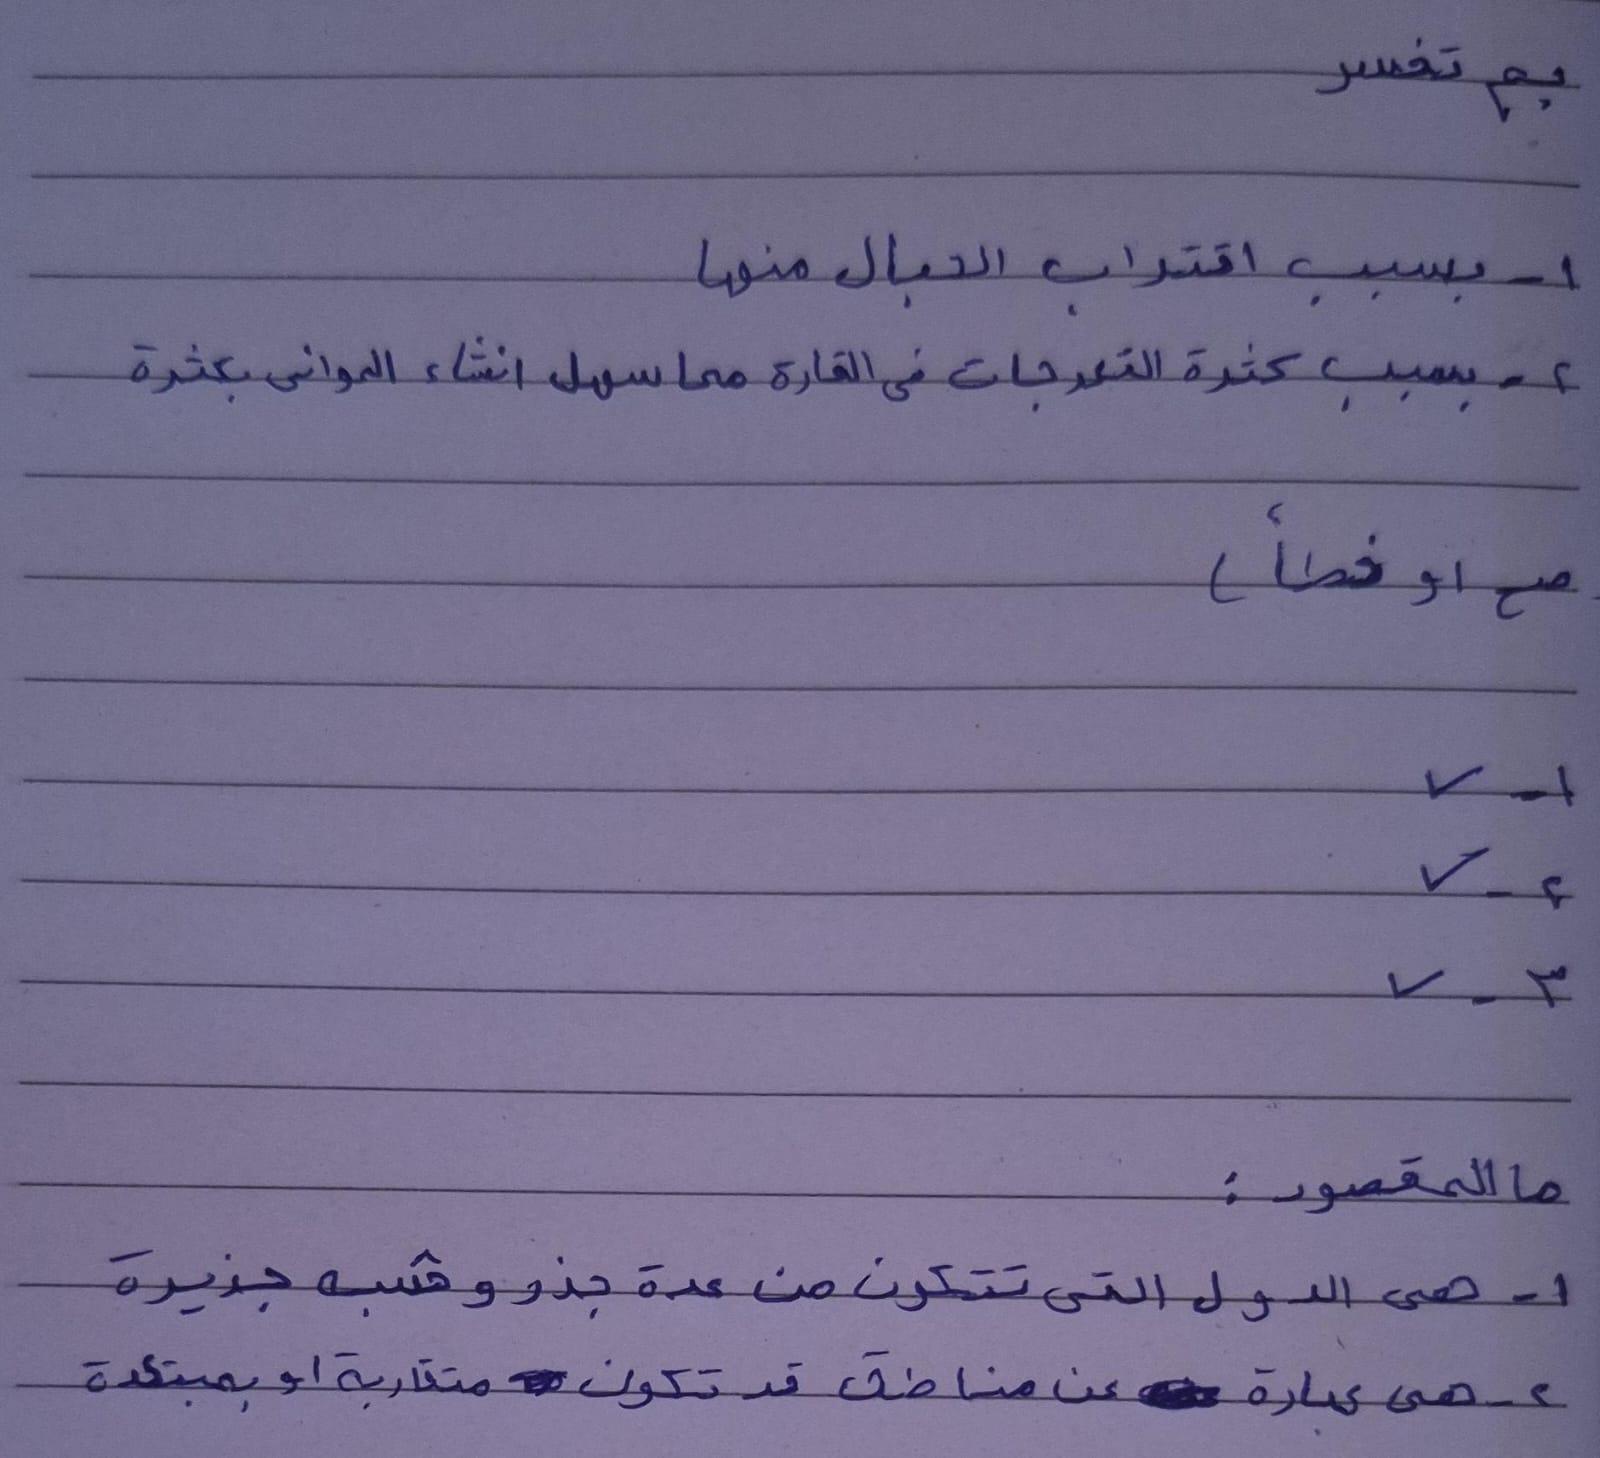 بم تفسر
١- بسبب اقتراب الجبال منها
٢- بسبب كثرة التعرجات في القارة مما سهل انشاء الموانى بكثرة
صح او خطأ )
١- ✓
٢- ✓
٣- ✓
ما المقصود :
١- هى الدول التى تتكون من عدة جذر وشبه جذيرة
٢- هى عبارة عن مناطق قد تكون متقاربة او